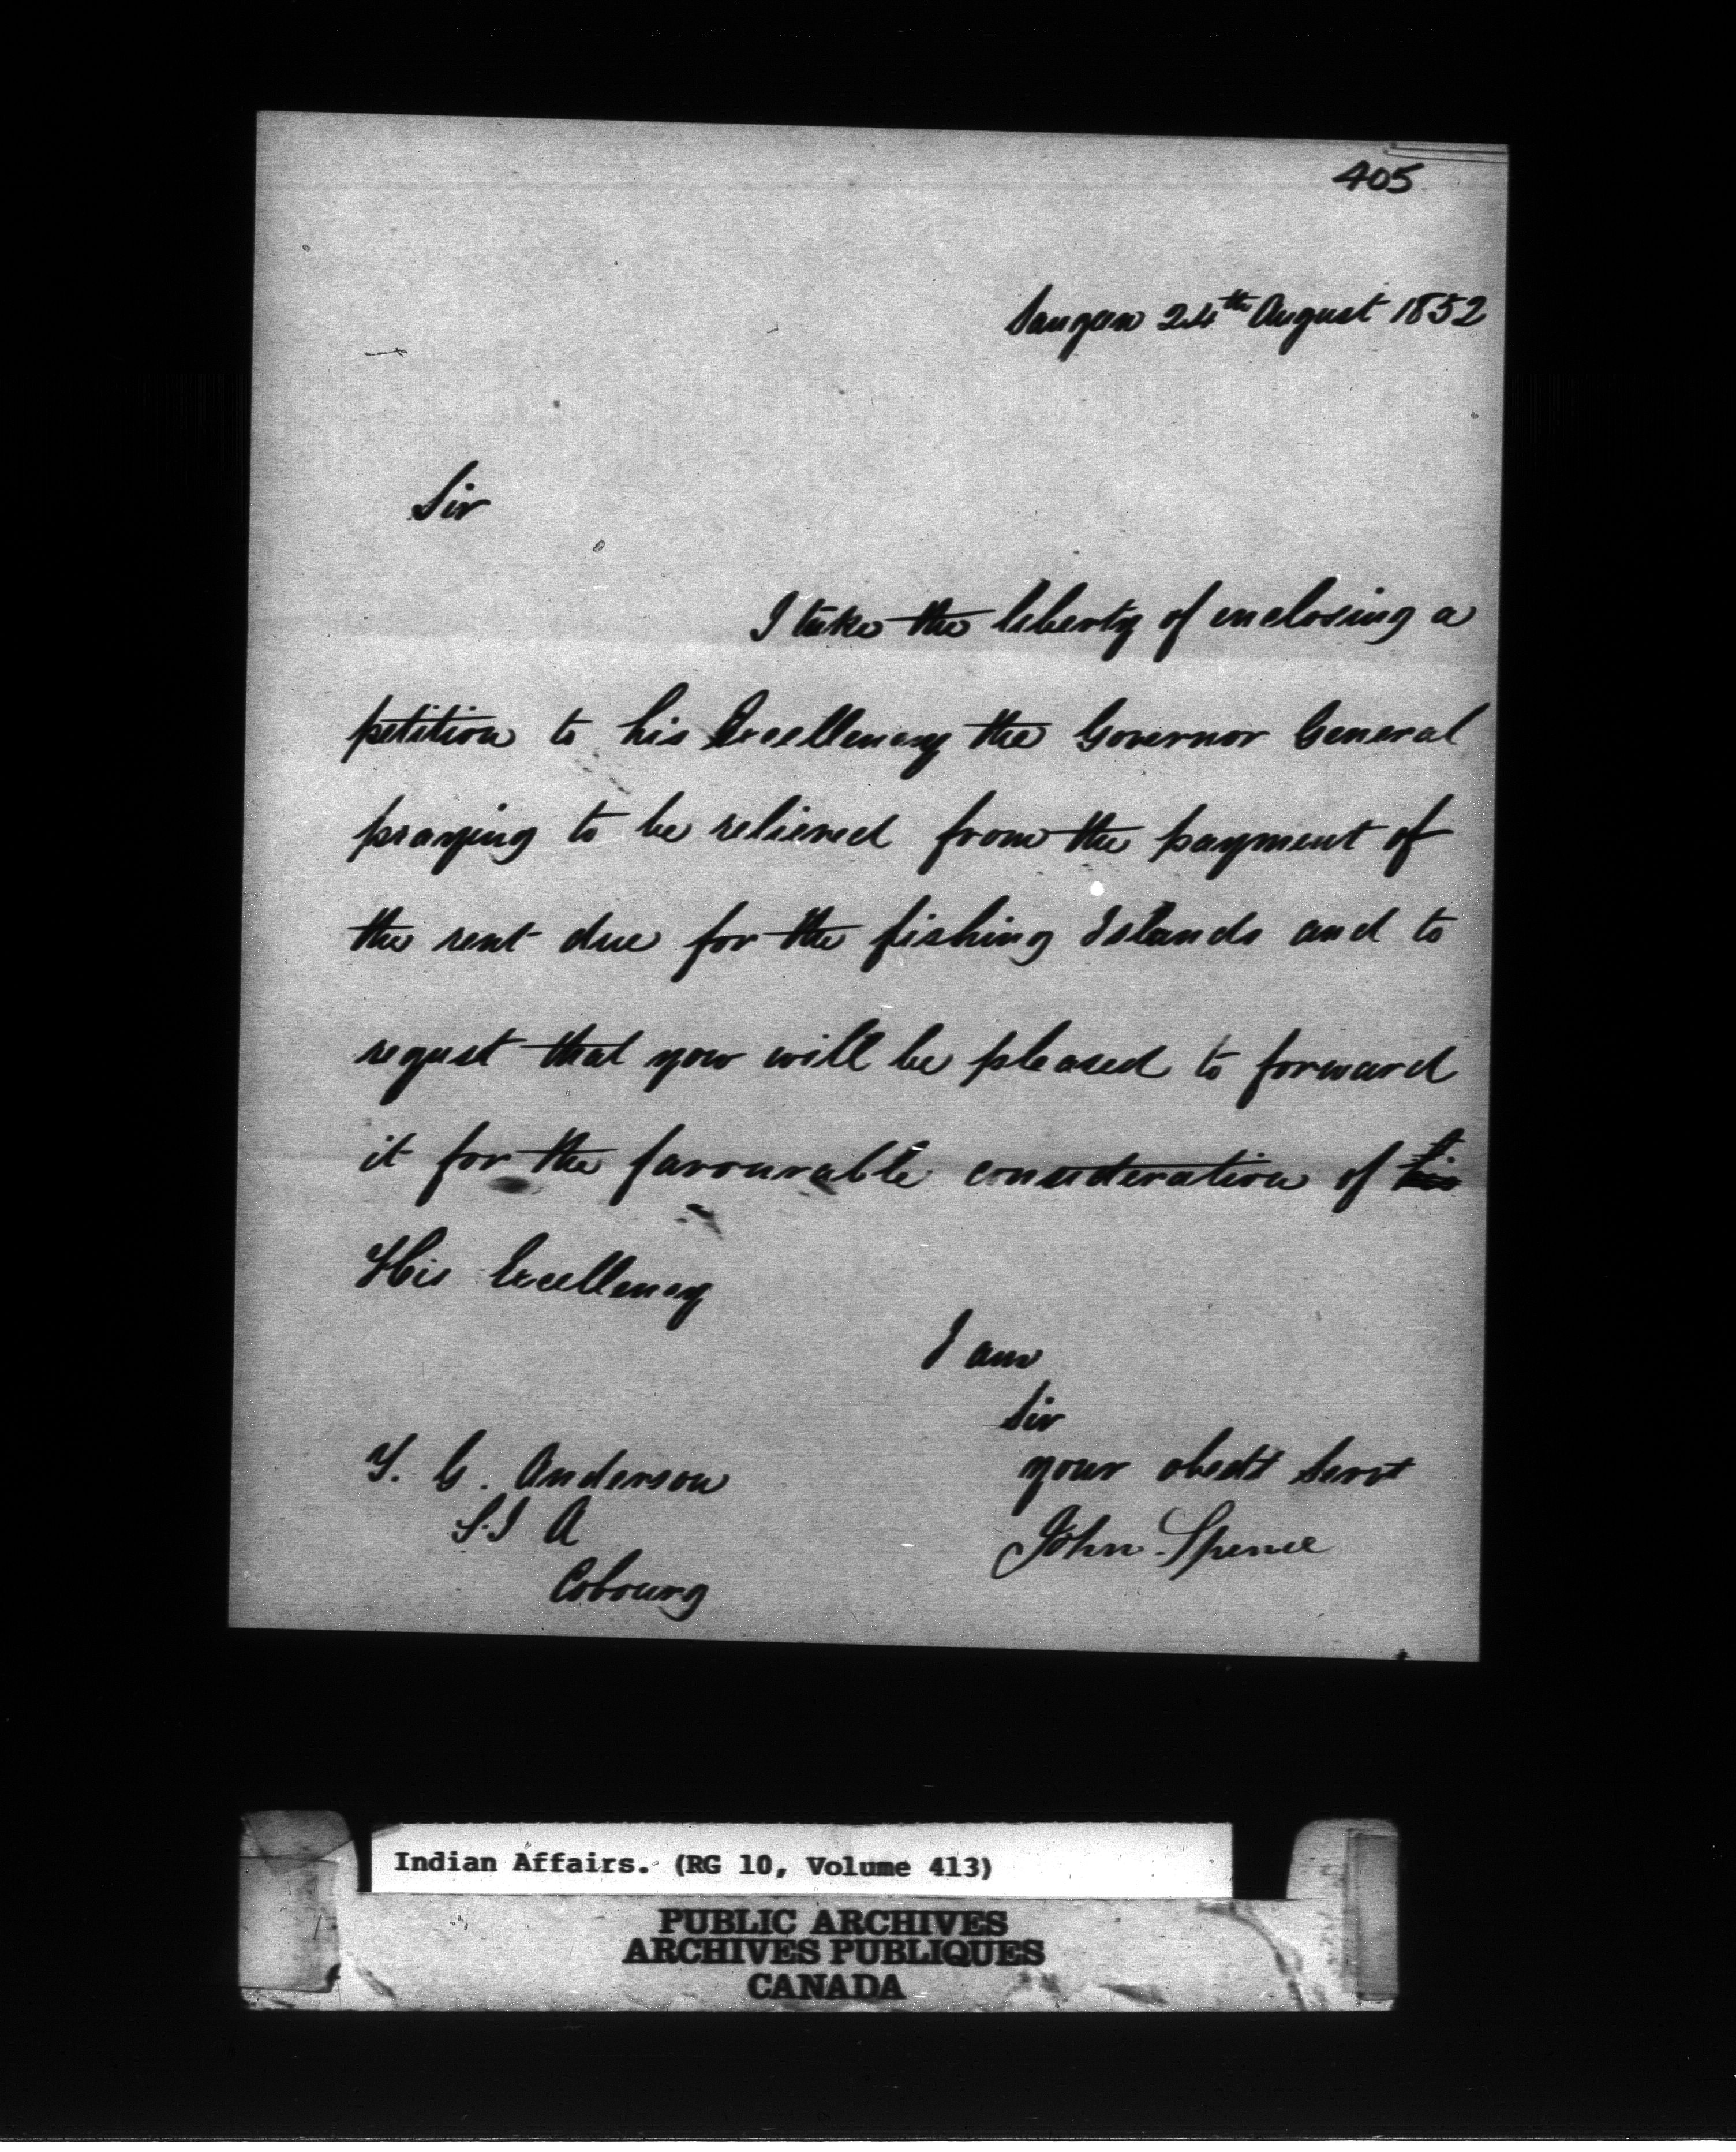 405
Saugeen 24th August 1852
Sir
I take the liberty of enclosing a
petition to his Excellency the Governor General
praying to be relieved from the payment of
the rent due for the fishing Islands and to
reqest that you will be pleased to forward
it for the favourable consideration of his
His Excellency
I am
Sir
your obedt Servt
John Spence
T. G. Anderson
S. I A
Cobourg
Indian Affairs. (RG 10, Volume 413)
PUBLIC ARCHIVES
ARCHIVES PUBLIQUES
CANADA